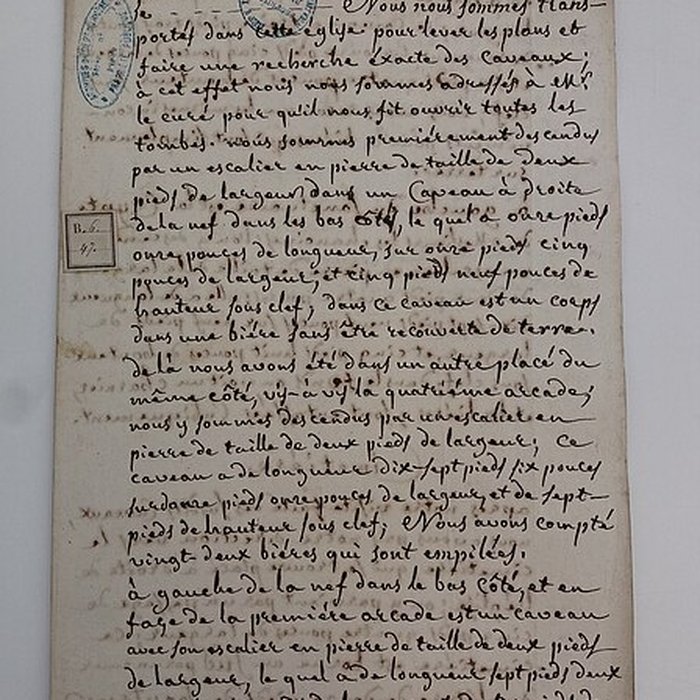 le - - - - - - - Nous nous sommes trans-
portés dans cette église pour lever les plans et
faire une recherche éxacte des caveaux;
à cet effet nous nous sommes adressés à Mr.
le curé pour qu'il nous fit ouvrir toutes les
tombes. nous sommes premiérement descendus
par un escalier en pierre de taille de deux
pieds de largeur, dans un Caveau à droite
de la nef dans les bas côté, le quel a onze pieds
onze pouces de longueur, sur onze pieds cinq
pouces de largeur, et cinq pieds neuf pouces de
hauteur sous clef; dans ce caveau est un corps
dans une biére sans être recouverte de terre.
de là nous avons été dans un autre placé du
même côté, vis-à vis la quatriéme arcade;
nous y sommes descendus par un escalier en
pierre de taille de deux pieds de largeur; ce
caveau a de longueur dix-sept pieds six pouces
sur donze pieds onze pouces de largeur, et de sept-
pieds de hauteur sous clef; Nous avons compté
vingt-deux biéres qui sont empilées.
à gauche de la nef dans le bas côté, et en
face de la premiére arcade est un caveau
avec son escalier en pierre de taille de deux pieds
de largeur, le quel à de longueur sept pieds deux
B. 6.
47.